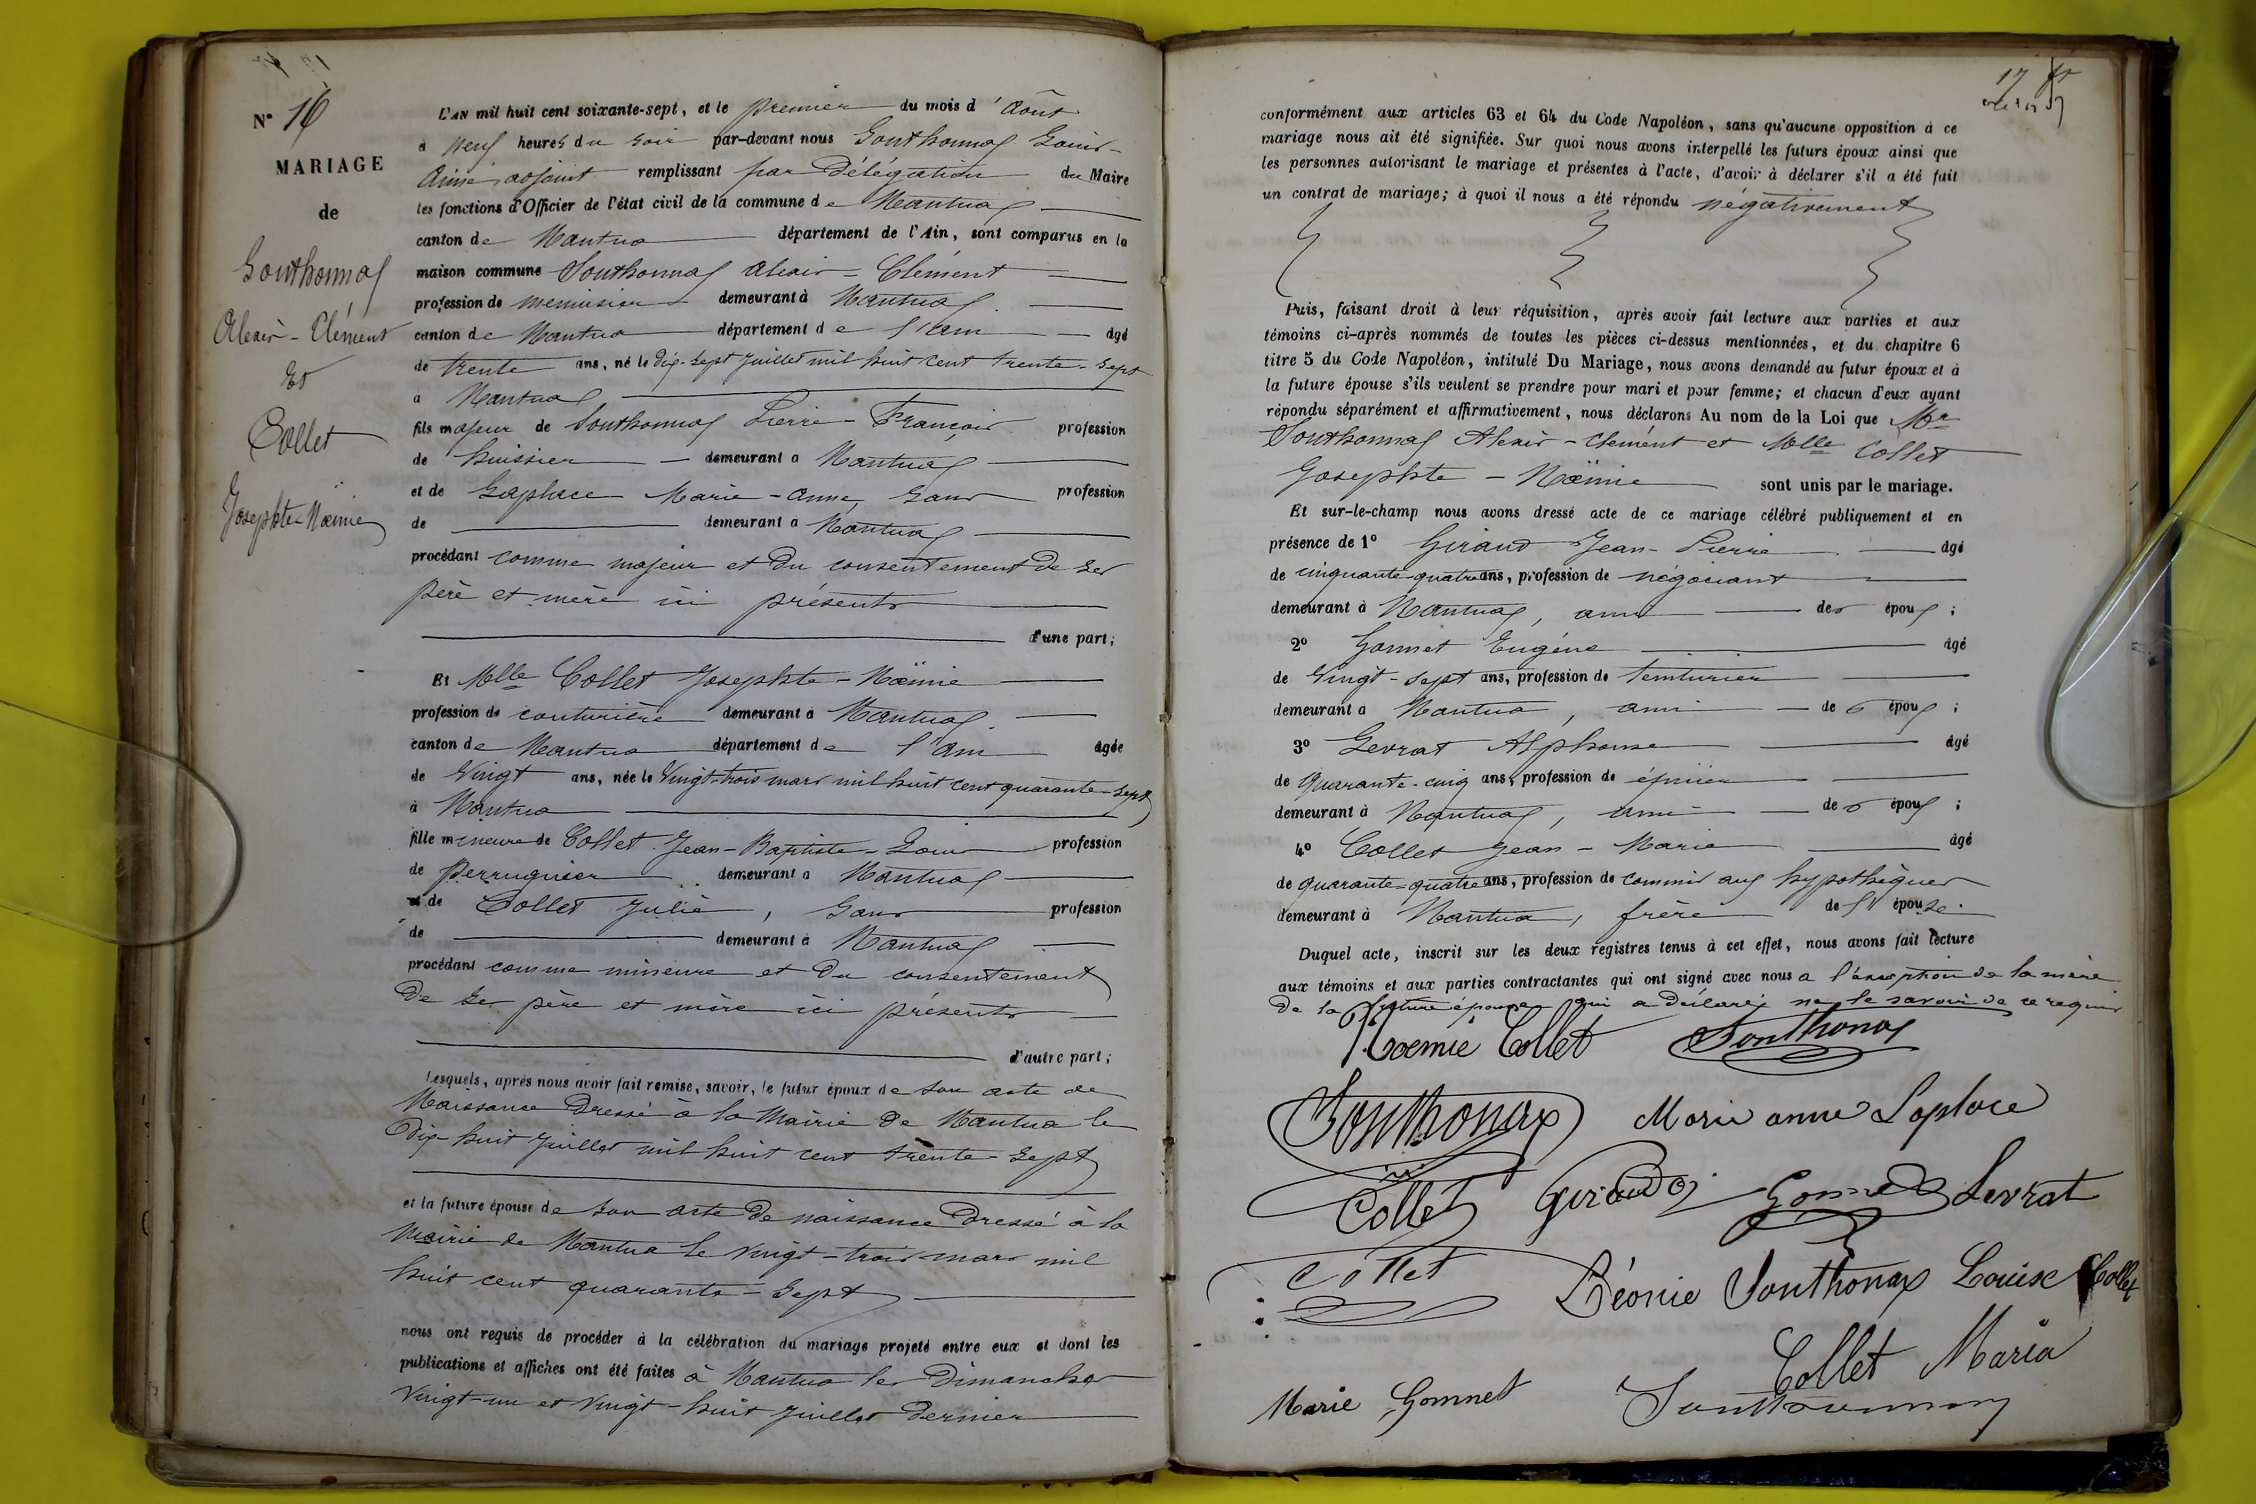 N° 16
MARIAGE
de
Southonnax
Alexis-Clément
Et
Collet
Josephte-Noëmie
L'AN mil huit cent soixante-sept, et le premier du mois d'Août
à neuf heures du soir par-devant nous Southonnax Louis-
Aimé, adjoint remplissant par Délégation du Maire
les fonctions d'Officier de l'état civil de la commune de Nantua
canton de Nantua département de l'Ain, sont comparus en la
maison commune Southonnax Alexis-Clément
profession de menuisier demeurant à Nantua
canton de Nantua département de l'ain âgé
de trente ans, né le dix-sept juillet mil huit cent trente-sept
à Nantua
fils majeur de Southonnax Pierre-François profession
de huissier demeurant à Nantua
et de Laplace Marie-Anne, sans profession
de demeurant à Nantua
procédant comme majeur et du consentement de ses
père et mère ici présents
d'une part;
Et Mlle Collet Josephte-Noëmie
profession de couturière demeurant à Nantua
canton de Nantua département de l'ain âgée
de Vingt ans, née le Vingt-trois mars mil huit cent quarante-sept
à Nantua
fille mineure de Collet Jean-Baptiste-Louis profession
de Perruquier demeurant à Nantua
et de Collet Julie, sans profession
de demeurant à Nantua
procédant comme mineure et du consentement
de ses père et mère ici présents
d'autre part;
Lesquels, après nous avoir fait remise, savoir, le futur époux de son acte de
Naissance dressé à la Mairie de Nantua le
Dix-huit juillet mil huit cent trente-sept
et la future épouse de son acte de naissance dressé à la
Mairie de Nantua le vingt-trois mars mil
huit cent quarante-sept
nous ont requis de procéder à la célébration du mariage projeté entre eux et dont les
publications et affiches ont été faites à Nantua les Dimanches
vingt-un et vingt-huit juillet dernier
17
conformément aux articles 63 et 64 du Code Napoléon, sans qu'aucune opposition à ce
mariage nous ait été signifiée. Sur quoi nous avons interpellé les futurs époux ainsi que
les personnes autorisant le mariage et présentes à l'acte, d'avoir à déclarer s'il a été fait
un contrat de mariage; à quoi il nous a été répondu négativement
Puis, faisant droit à leur réquisition, après avoir fait lecture aux parties et aux
témoins ci-après nommés de toutes les pièces ci-dessus mentionnées, et du chapitre 6
titre 5 du Code Napoléon, intitulé Du Mariage, nous avons demandé au futur époux et à
la future épouse s'ils veulent se prendre pour mari et pour femme; et chacun d'eux ayant
répondu séparément et affirmativement, nous déclarons Au nom de la Loi que Mr
Southonnax Alexis-Clément et Mlle Collet
Josephte-Noëmie sont unis par le mariage.
Et sur-le-champ nous avons dressé acte de ce mariage célébré publiquement et en
présence de 1° Giraud Jean-Pierre âgé
de cinquante-quatre ans, profession de négociant
demeurant à Nantua, ami des époux;
2° Gonnet Eugène âgé
de Vingt-sept ans, profession de teinturier
demeurant à Nantua, ami des époux;
3° Levrat Alphonse âgé
de quarante-cinq ans, profession de épicier
demeurant à Nantua, ami des époux;
4° Collet Jean-Marie âgé
de quarante-quatre ans, profession de commis aux hypothèques
demeurant à Nantua, frère de l'épouse.
Duquel acte, inscrit sur les deux registres tenus à cet effet, nous avons fait lecture
aux témoins et aux parties contractantes qui ont signé avec nous a l'exception de la mère
de la future épouse qui a déclaré ne le savoir de ce requis
Noemie Collet Southonax
Southonax Marie anne Laplace
Collet Giraud Gonnet Levrat
Collet Léonie Southonax Louise Collet
Collet Maria
Marie Gonnet Southonnax